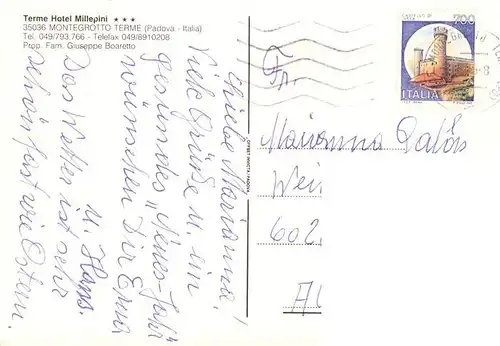 Terme Hotel Millepini ★ ★ ★
35036 MONTEGROTTO TERME (Padova - Italia)
Tel. 049/793.766 - Telefax 049/8910208
Prop. Fam. Giuseppe Boaretto
Liebe Marianna!
Viele Grüße u. ein
gesundes "Neues-Jahr
wünschen Dir Erna
u. Hans.
Das Wetter ist sehr
schön fast wie Ostern.
700
ITALIA
Fr.
Marianna
Wei
602